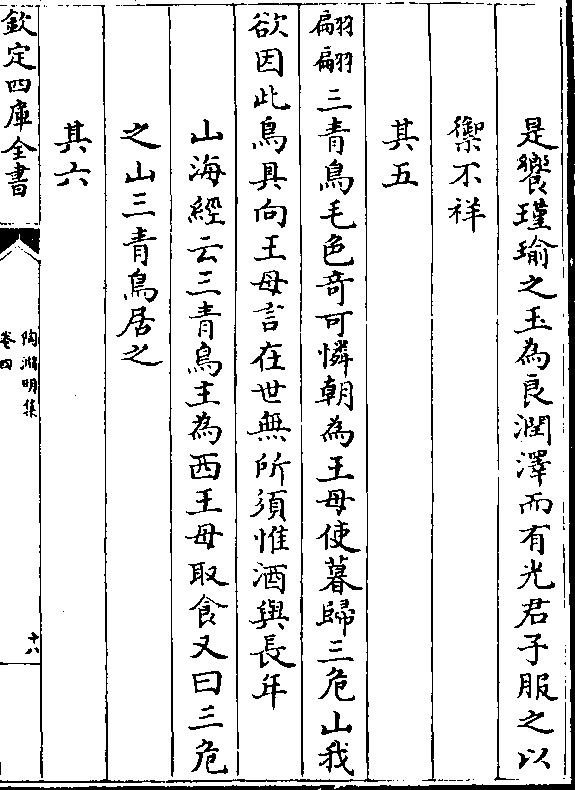 是饗瑾瑜之玉為良潤澤而有光君子服之以
禦不祥
其五
翩翩三青鳥毛色奇可憐朝為王母使暮歸三危山我
欲因此鳥具向王母言在世無所須惟酒與長年
山海經云三青鳥主為西王母取食又曰三危
之山三青鳥居之
其六
欽定四庫全書
陶淵明集
卷四
十六